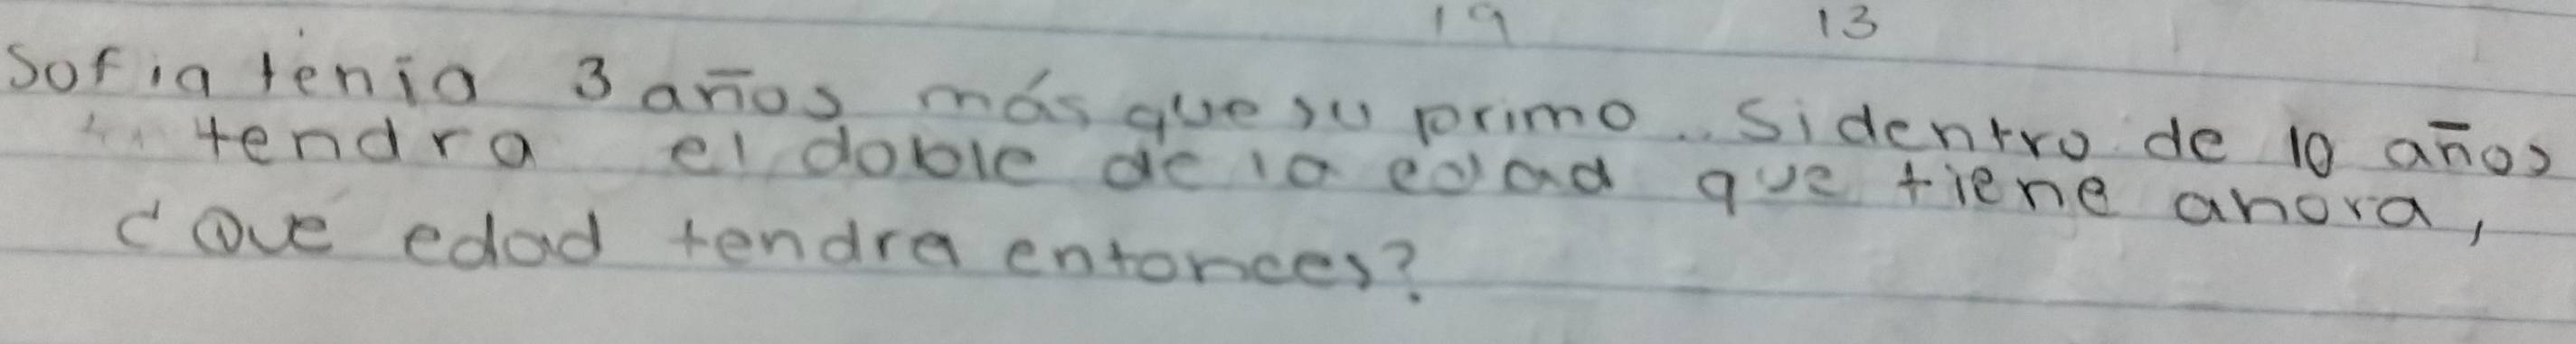 19 13
Sofia tenia 3 años más que su primo.. Si dentro de 10 años
tendra el doble de la edad que tiene ahora,
¿Que edad tendra entonces?